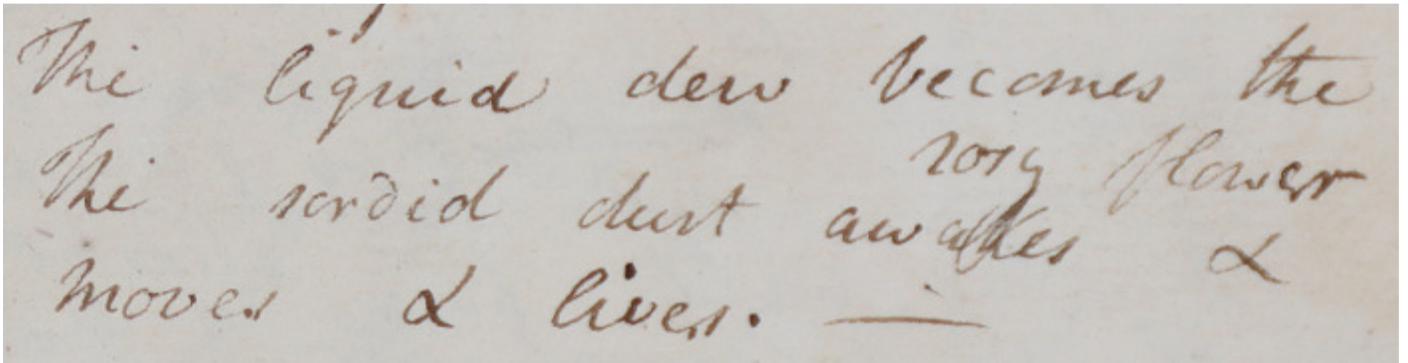 The liquid dew becomes the
rosy flower
The sordid dust awakes &
moves & lives. —